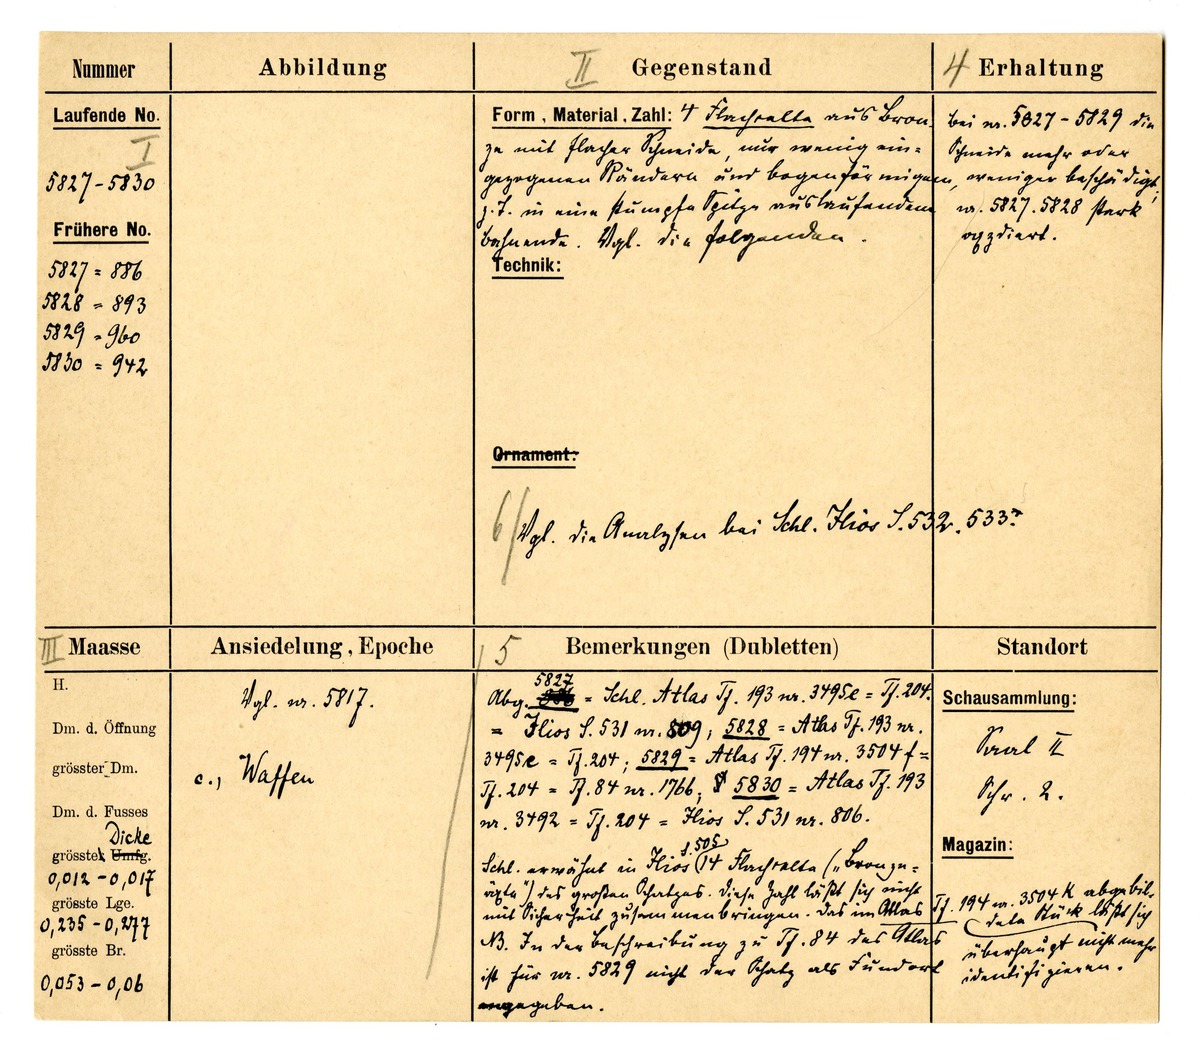 Nummer
Laufende No.
I
5827-5830
Frühere No.
5827 = 886
5828 = 893
5829 = 960
5830 = 942
Abbildung
II Gegenstand
Form, Material, Zahl: 4 Flachcelte aus Bron-
ze mit flacher Schneide, nur wenig ein-
gezogenen Rändern und bogenförmigem,
z.T. in eine stumpfe Spitze auslaufendem
Bahnende. Vgl. die folgenden.
Technik:
Ornament:
6/ Vgl. die Analysen bei Schl. Ilios S. 532. 533.
4 Erhaltung
bei nr. 5827-5829 die
Schneide mehr oder
weniger beschädigt;
nr. 5827. 5828 stark
oxydiert.
III Maasse
H.
Dm. d. Öffnung
grösster Dm.
Dm. d. Fusses
Dicke
grösste Umfg.
0,012-0,017
grösste Lge.
0,235-0,277
grösste Br.
0,053-0,06
Ansiedelung, Epoche
Vgl. nr. 5817.
c., Waffen
5 Bemerkungen (Dubletten)
5827
Abg. = Schl. Atlas Tf. 193 nr. 3495c = Tf. 204.
= Ilios S. 531 nr. 809; 5828 = Atlas Tf. 193 nr.
3495e = Tf. 204; 5829 = Atlas Tf. 194 nr. 3504 f =
Tf. 204 = Tf. 84 nr. 1766; 5830 = Atlas Tf. 193
nr. 3492 = Tf. 204 = Ilios S. 531 nr. 806.
S. 505
Schl. erwähnt in Ilios 14 Flachcelte („Bronze-
äxte“) des großen Schatzes. Diese Zahl läßt sich nicht
mit Sicherheit zusammenbringen. Das im Atlas Tf. 194 nr. 3504 k abgebil-
dete Stück läßt sich
überhaupt nicht mehr
identifizieren.
NB. In der Beschreibung zu Tf. 84 des Atlas
ist für nr. 5829 nicht der Schatz als Fundort
angegeben.
Standort
Schausammlung:
Saal II
Schr. 2.
Magazin: